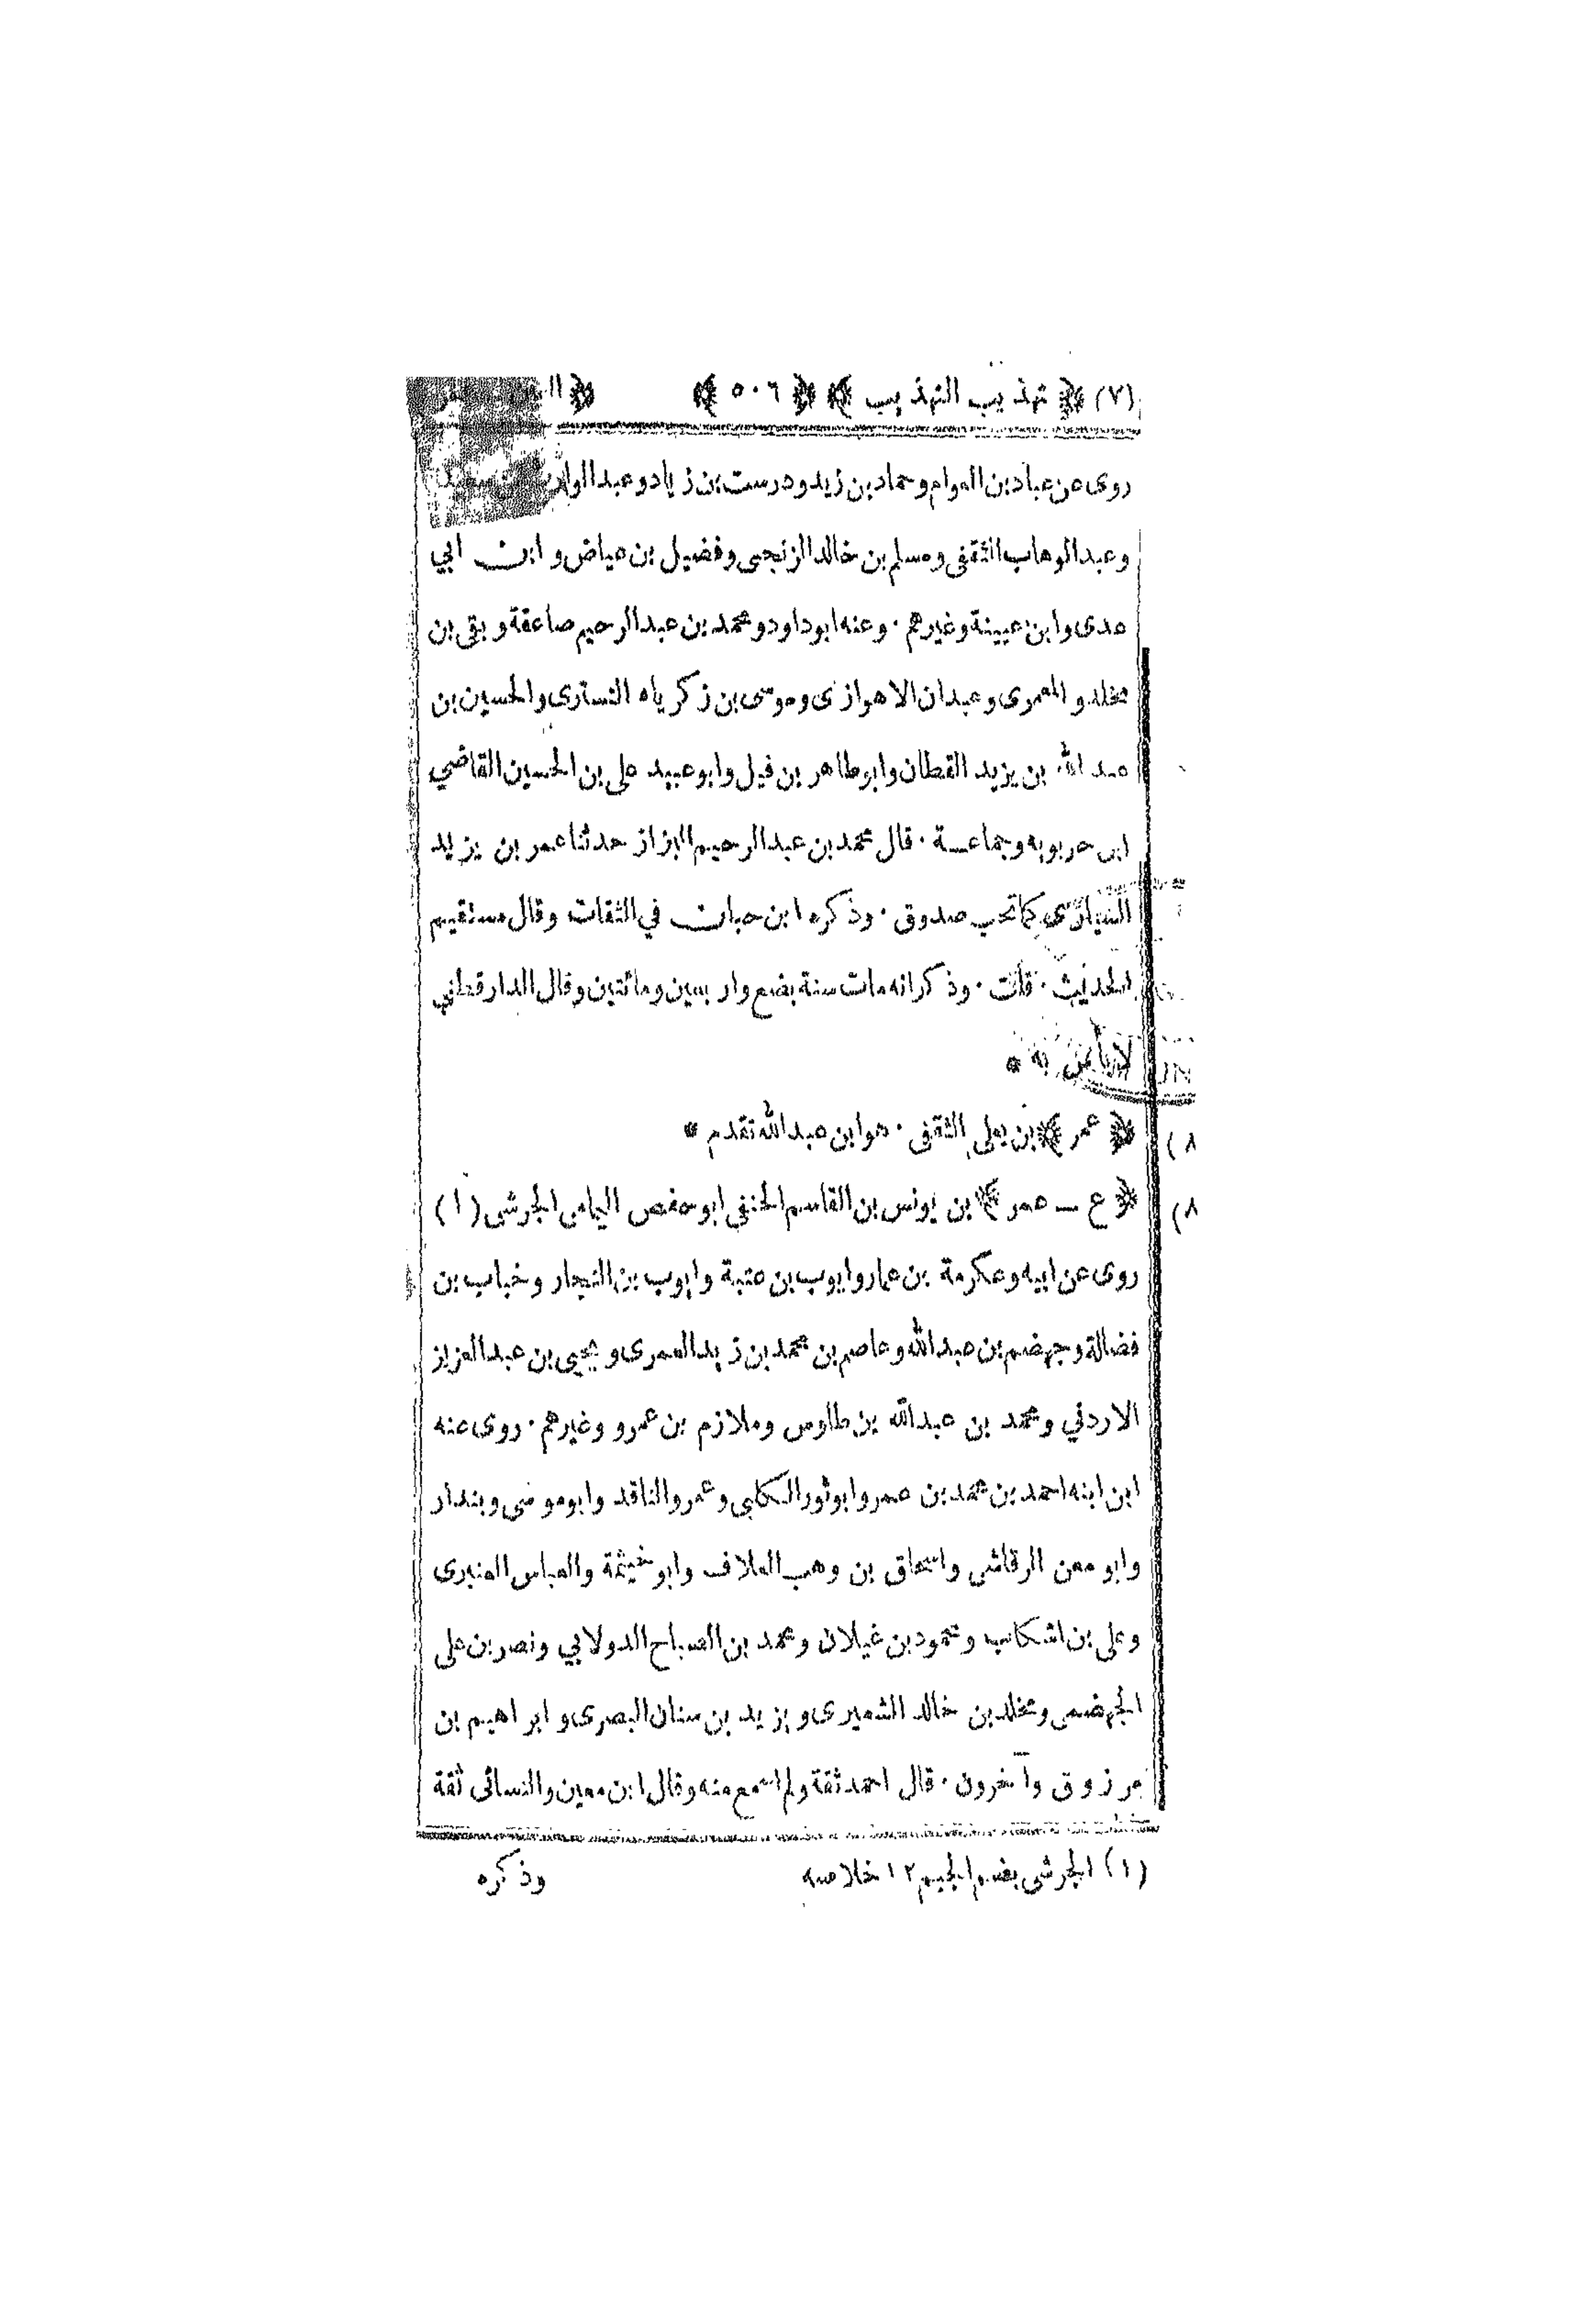 (٧) ﴿ تهذيب التهذيب ﴾ ﴿ ٥٠٦ ﴾
روى عن عباد بن العوام وحماد بن زيد ودرست بن زياد وعبد الوارث
وعبد الوهاب الثقفى ومسلم بن خالد الزنجى وفضيل بن عياض وابن ابي
عدى وابن عيينة وغيرهم . وعنه ابو داود ومحمد بن عبد الرحيم صاعقة وبقى بن
مخلد والمعمرى وعبدان الاهوازى وموسى بن زكرياه التسترى والحسين بن
عبد الله بن يزيد القطان وابو طاهر بن فيل وابو عبيد على بن الحسين القاضي
ابن حربويه وجماعة . قال محمد بن عبد الرحيم البزاز حدثنا عمر بن يزيد
السيارى كما تحب صدوق . وذكره ابن حبان في الثقات وقال مستقيم
الحديث . قلت . وذكر انه مات سنة بضع واربعين ومائتين وقال الدارقطني
لا بأس به *
﴿ عمر ﴾ بن يعلى الثقفى . هو ابن عبد الله تقدم *
﴿ ع ـ عمر ﴾ بن يونس بن القاسم الحنفي ابو حفص اليمامى الجرشى (١)
روى عن ابيه وعكرمة بن عمار وايوب بن عتبة وايوب بن النجار وخباب بن
فضالة وجهضم بن عبد الله وعاصم بن محمد بن زيد العمرى ويحيى بن عبد العزيز
الاردني ومحمد بن عبد الله بن طاوس وملازم بن عمرو وغيرهم . روى عنه
ابن ابنه احمد بن محمد بن عمر وابو ثور الكلبى وعمرو الناقد وابو موسى وبندار
وابو معن الرقاشى واسحاق بن وهب العلاف وابو خيثمة والعباس العنبرى
وعلى بن اشكاب ومحمود بن غيلان ومحمد بن الصباح الدولابي ونصر بن على
الجهضمى ومخلد بن خالد الشعيرى ويزيد بن سنان البصرى وابراهيم بن
مرزوق وآخرون . قال احمد ثقة ولم اسمع منه وقال ابن معين والنسائى ثقة
(١) الجرشى بضم الجيم ١٢ خلاصه
وذكره